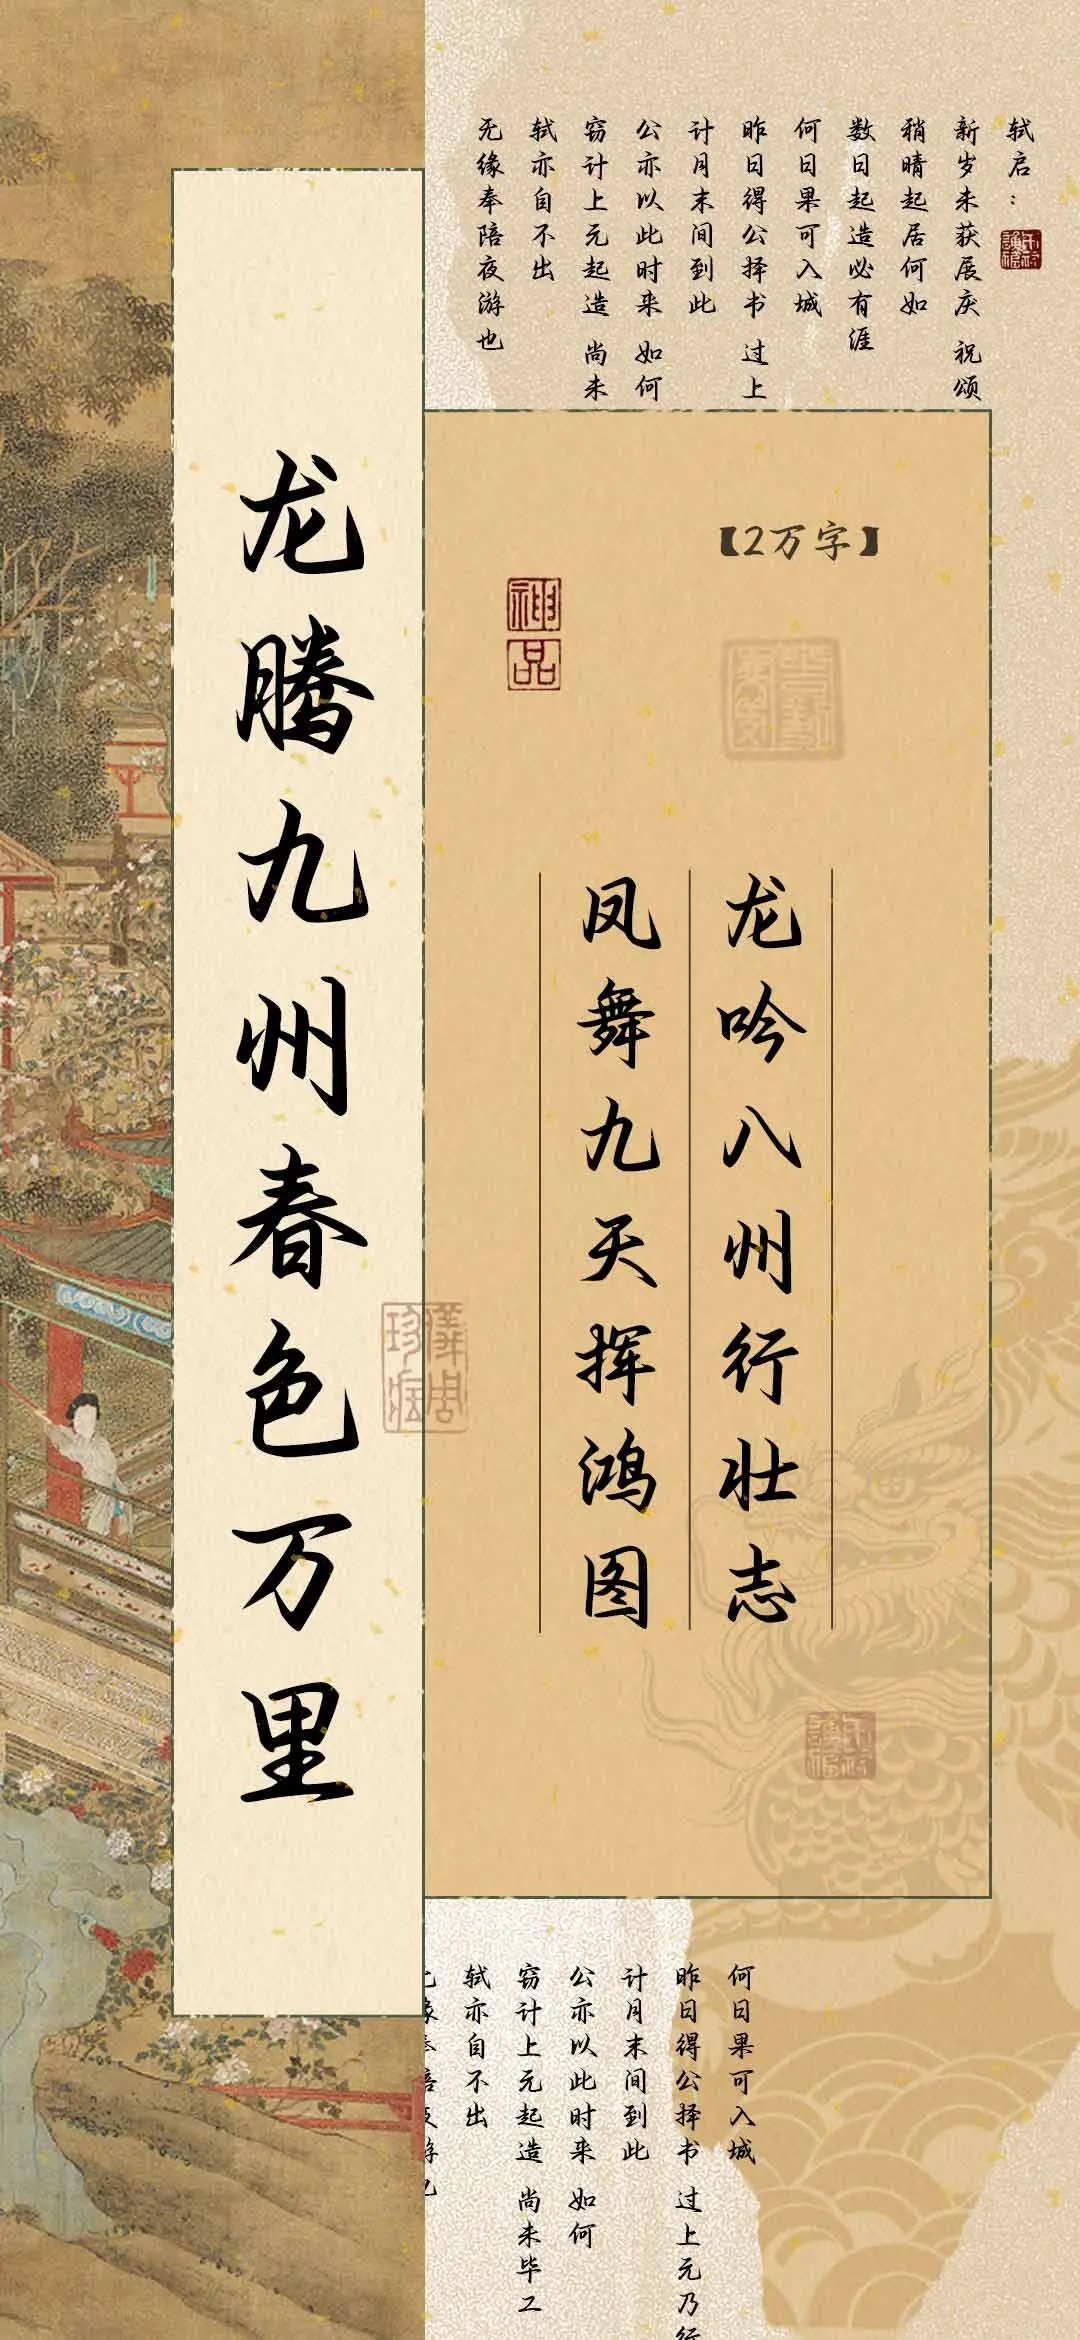 轼启：
新岁未获展庆 祝颂
稍晴起居何如
数日起造必有涯
何日果可入城
昨日得公择书 过上
计月末间到此
公亦以此时来 如何
窃计上元起造 尚未
轼亦自不出
无缘奉陪夜游也
【2万字】
神品
龙吟八州行壮志
凤舞九天挥鸿图
龙腾九州春色万里
何日果可入城
昨日得公择书 过上元乃行
计月末间到此
公亦以此时来 如何
窃计上元起造 尚未毕工
轼亦自不出